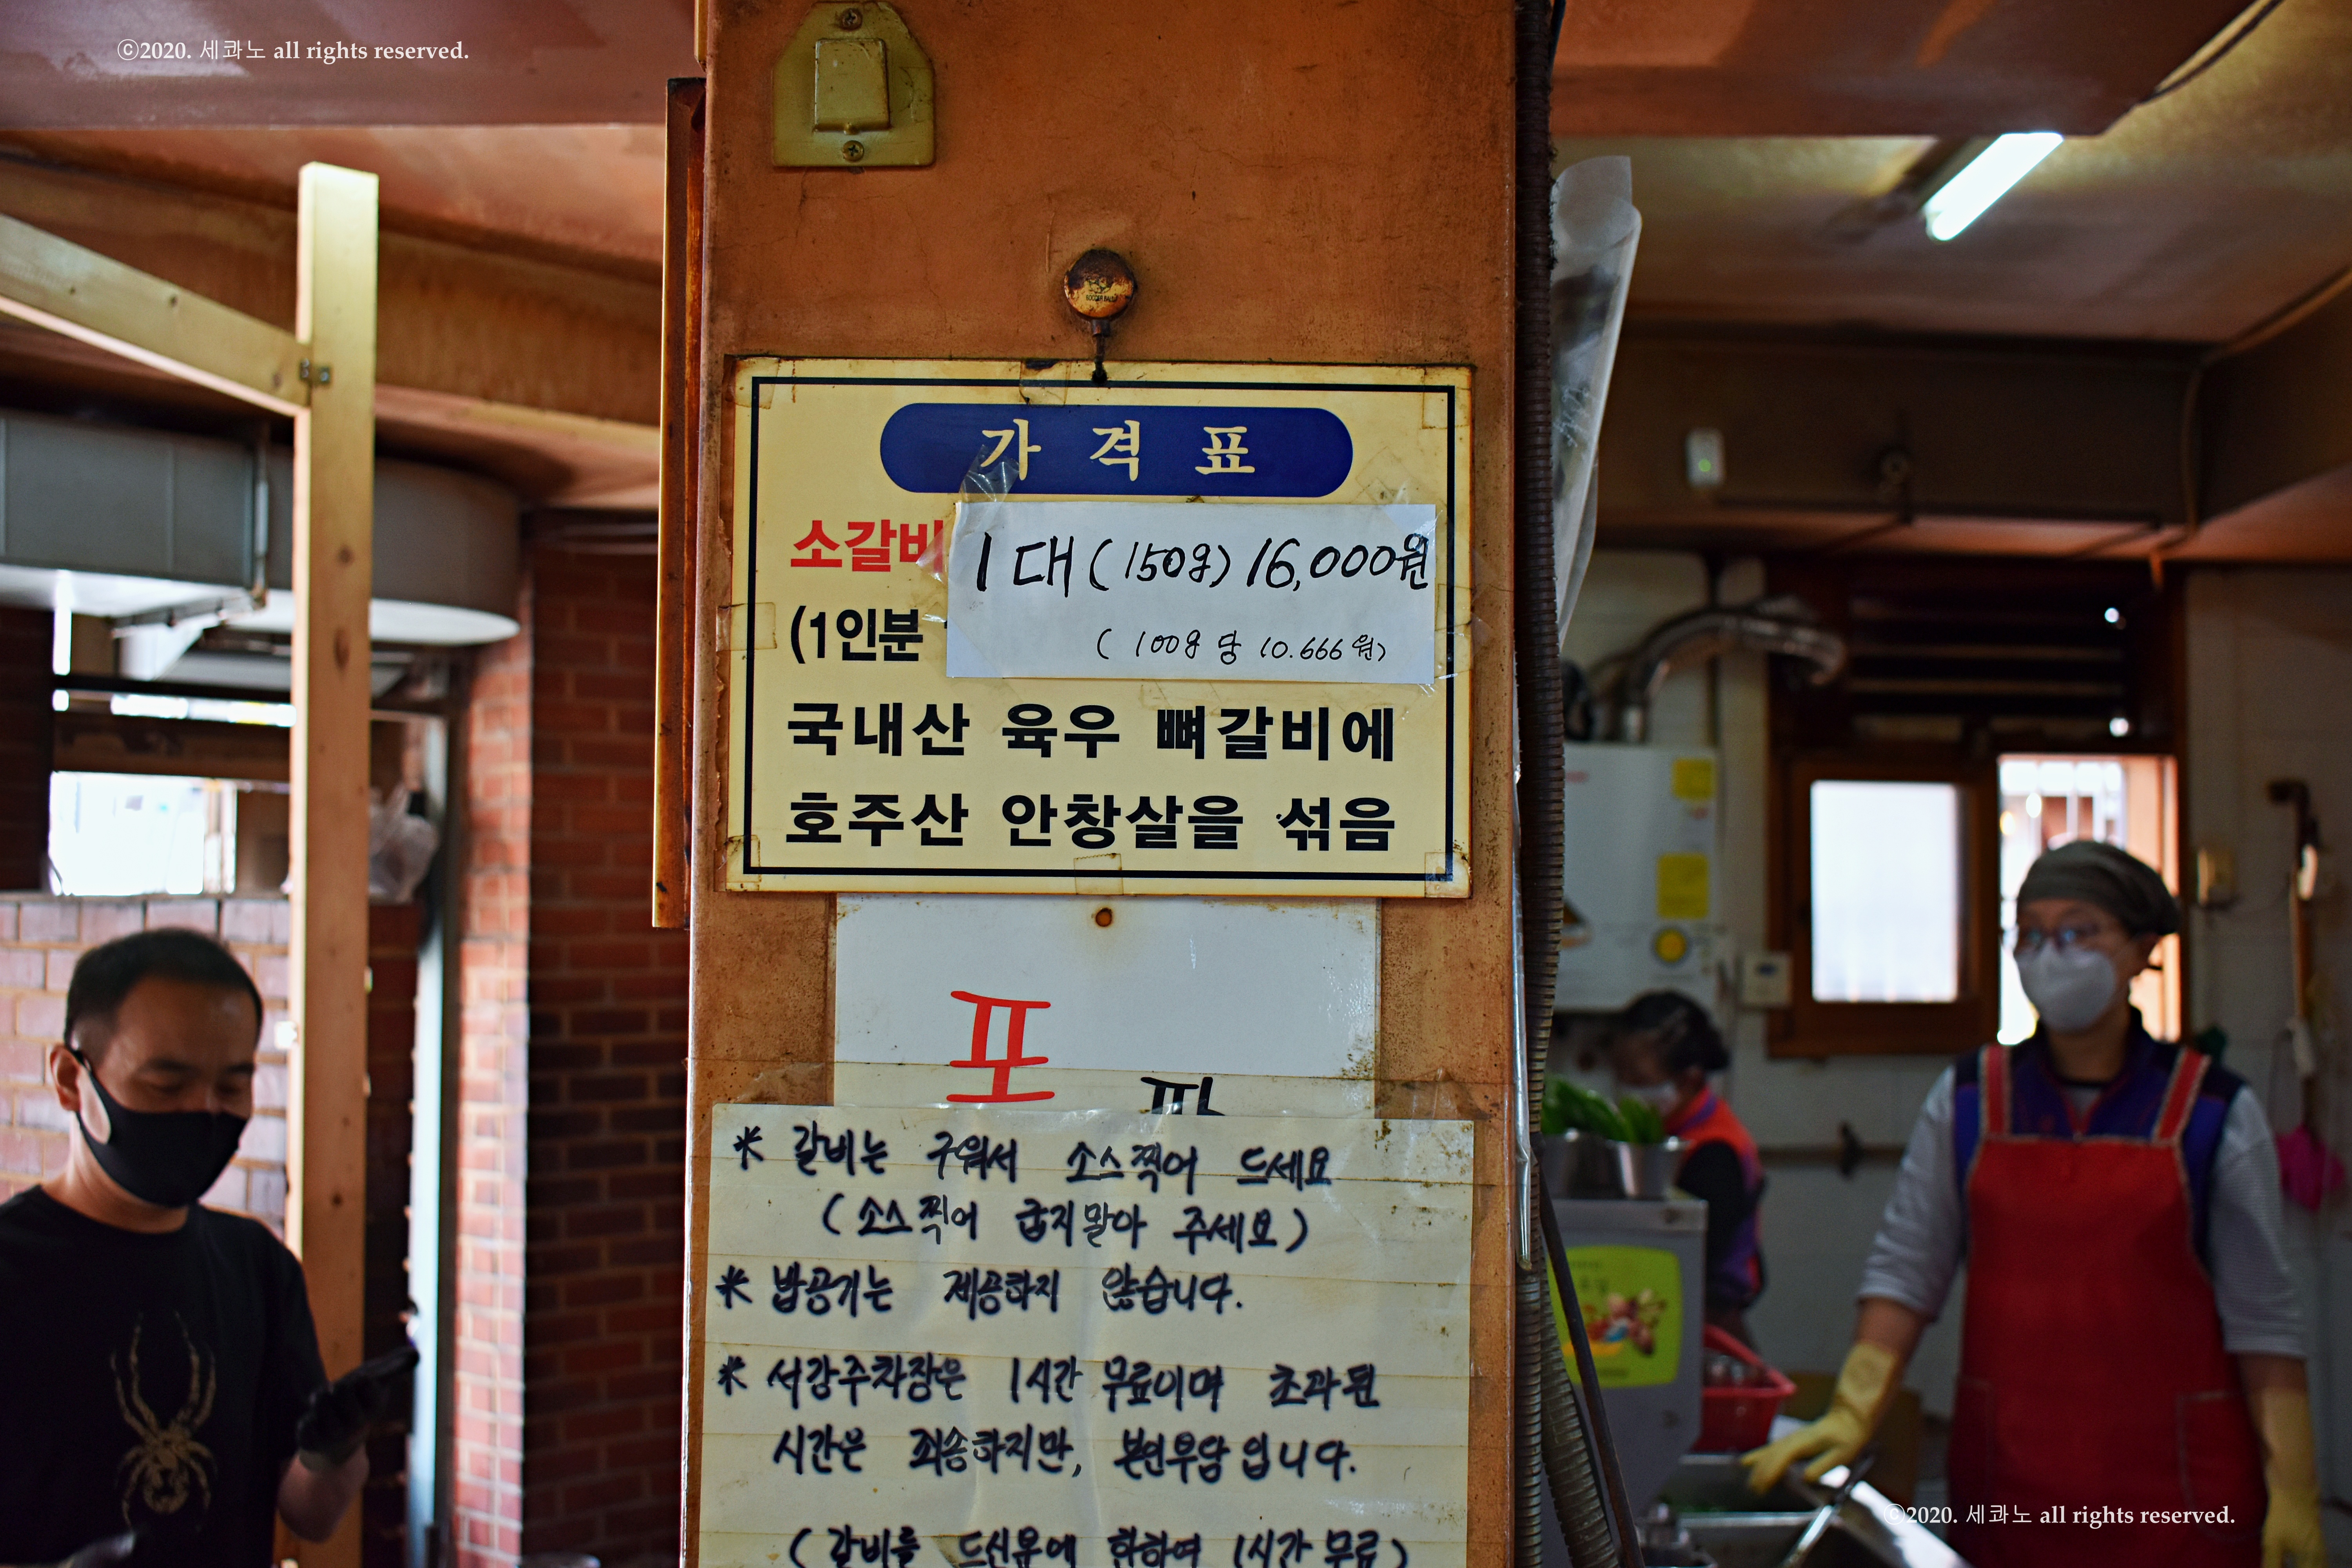 ⓒ2020. 세콰노 all rights reserved.
가 격 표
소갈비 1대(150g) 16,000원
(1인분 (100g 당 10.666원)
국내산 육우 뼈갈비에
호주산 안창살을 섞음
포
* 갈비는 구워서 소스찍어 드세요
(소스찍어 굽지말아 주세요)
* 밥공기는 제공하지 않습니다.
* 서강주차장은 1시간 무료이며 초과된
시간은 죄송하지만, 본인부담 입니다.
(갈비를 드신분에 한하여 1시간 무료)
ⓒ2020. 세콰노 all rights reserved.